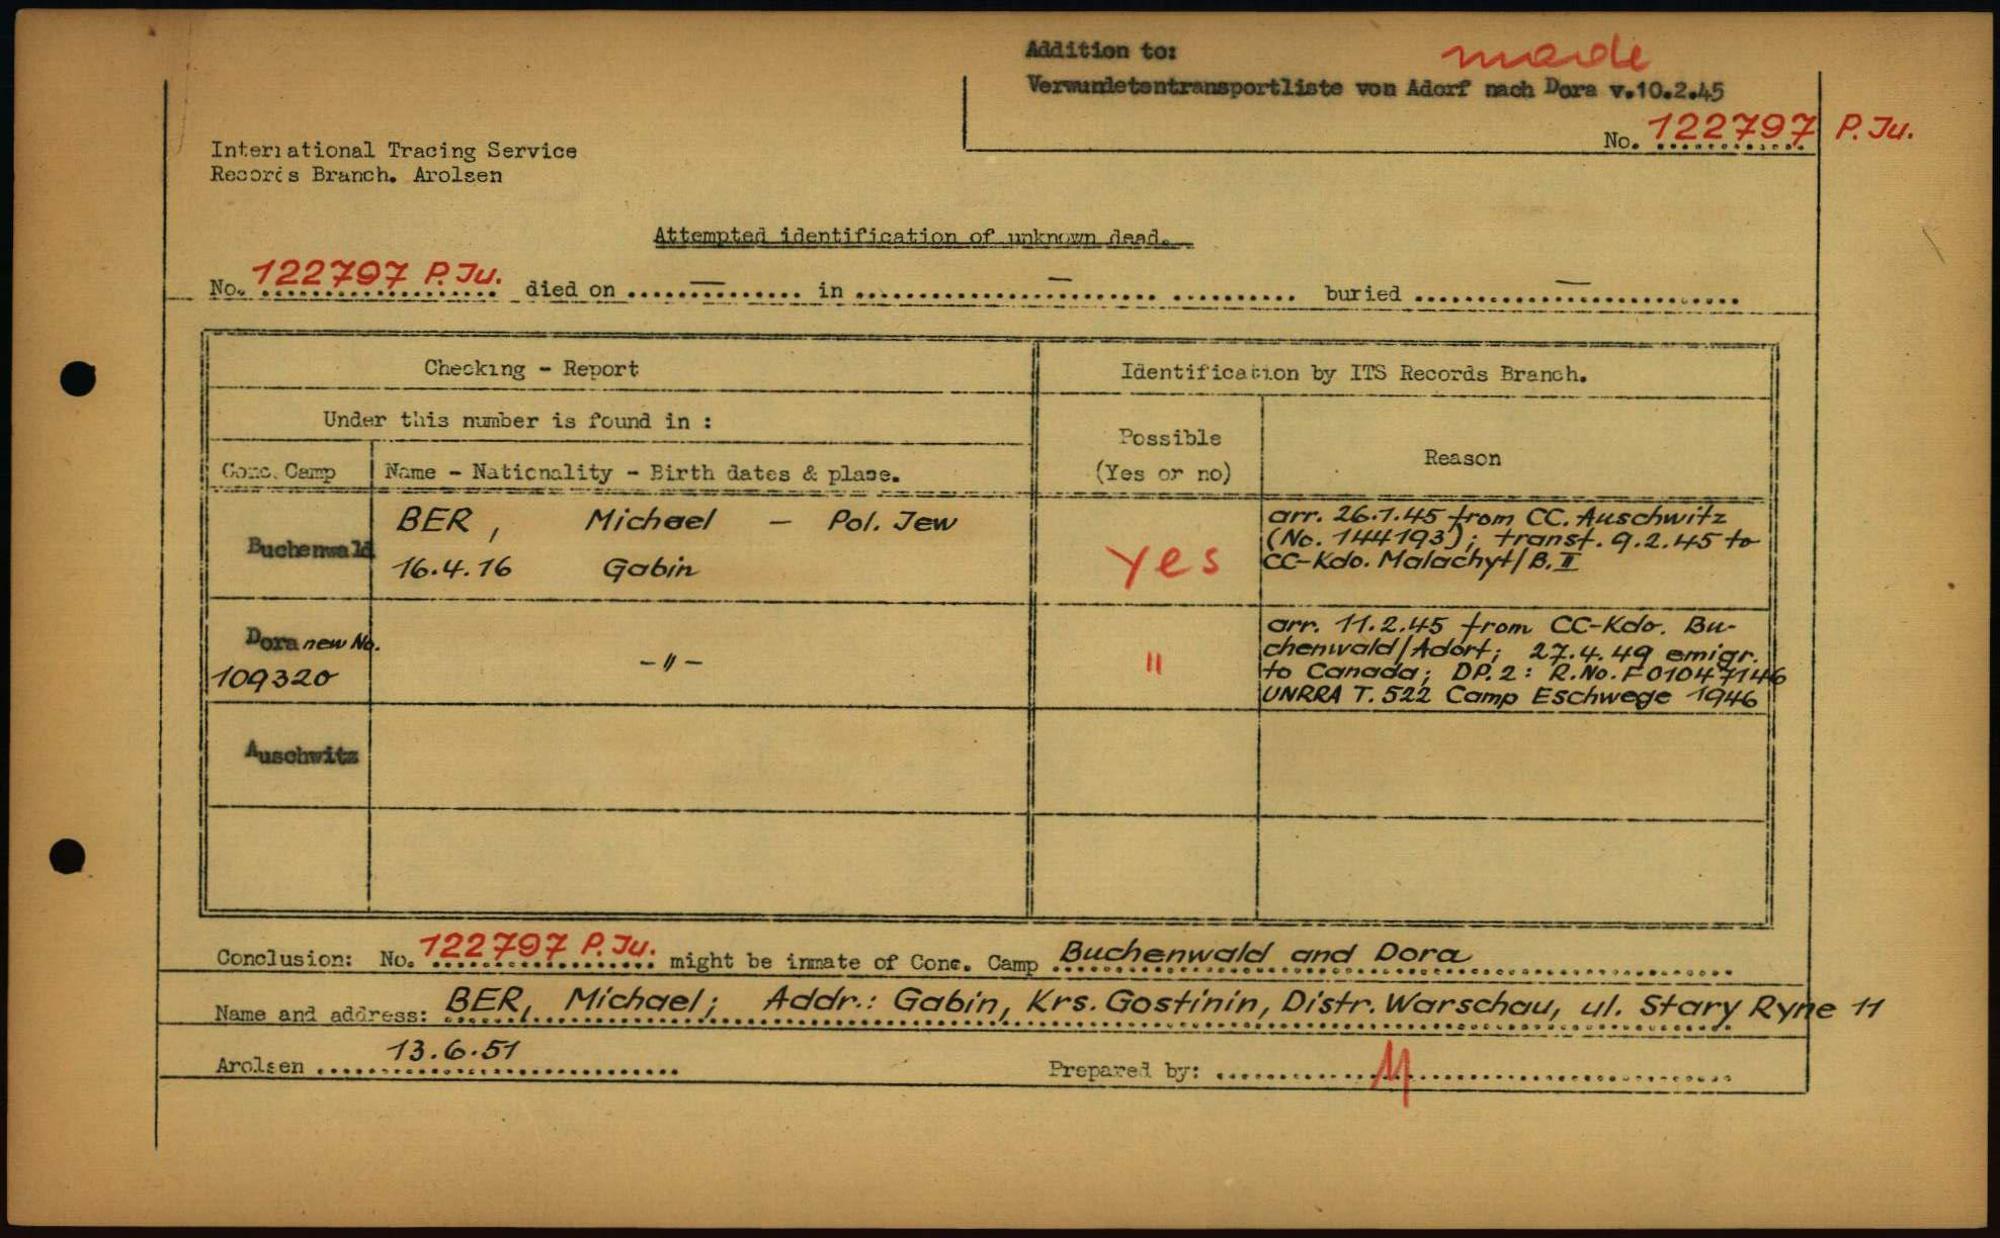 Addition to:
made
Verwundetentransportliste von Adorf nach Dora v.10.2.45
No. 122797 P. Ju.
International Tracing Service
Records Branch. Arolsen
Attempted identification of unknown dead.
No. 122797 P. Ju. died on — in — buried —
Checking - Report
Identification by ITS Records Branch.
Under this number is found in :
Possible
(Yes or no)
Reason
Conc. Camp
Name - Nationality - Birth dates & place.
Buchenwald
BER, Michael - Pol. Jew
16.4.16 Gabin
yes
arr. 26.1.45 from CC. Auschwitz
(No. 144193); transf. 9.2.45 to
CC-Kdo. Malachyt/B. II
Dora new No.
109320
- " -
"
arr. 11.2.45 from CC-Kdo. Bu-
chenwald/Adorf; 27.4.49 emigr.
to Canada; DP.2: R.No. F01047146
UNRRA T. 522 Camp Eschwege 1946
Auschwitz
Conclusion: No. 122797 P. Ju. might be inmate of Conc. Camp Buchenwald and Dora
Name and address: BER, Michael; Addr.: Gabin, Krs. Gostinin, Distr. Warschau, ul. Stary Ryne 11
Arolsen 13.6.51
Prepared by: